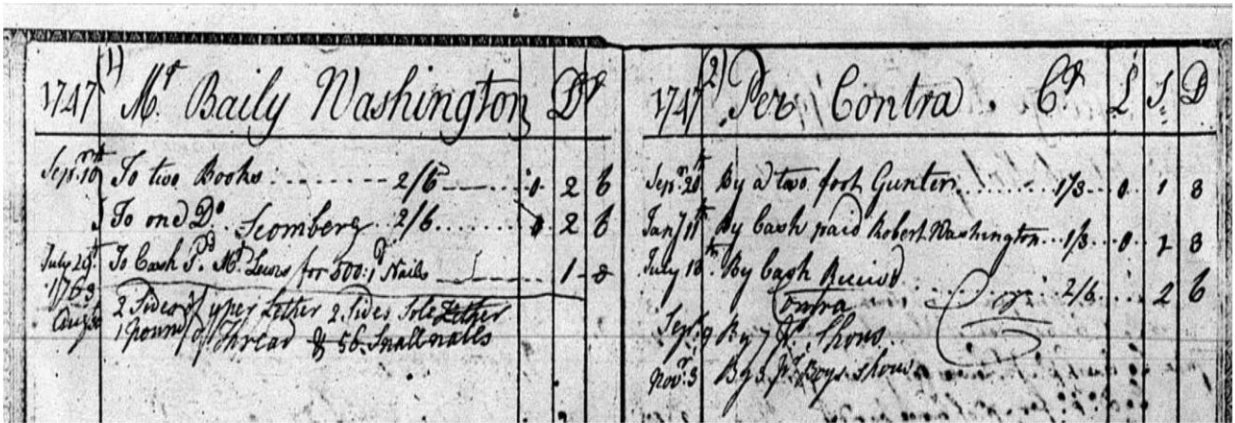 1747 1) Mr. Baily Washington Dr
Sepr. 10th To two Books 2/6 0 2 6
To one Do. Scomberg 2/6 0 2 6
July 29th To Cash Pd. Mr. Lewis for 500: 1d Nails 1 8
1763
Augt 2 Sides of uper Lether 2 Sides Sole Lether
1 Pound of Thread & 56 Small nalls
1747 2) Per Contra Cr £ S D
Sepr. 20th By a two foot Gunter 1/3 0 1 3
Jany 11th By Cash paid Robert Washington 1/3 0 1 3
July 18th By Cash Receivd 2/6 2 6
Contra Cr
Sept 9 By 7 Pr. Shous
Novr. 3 By 3 Pr Boys Shous